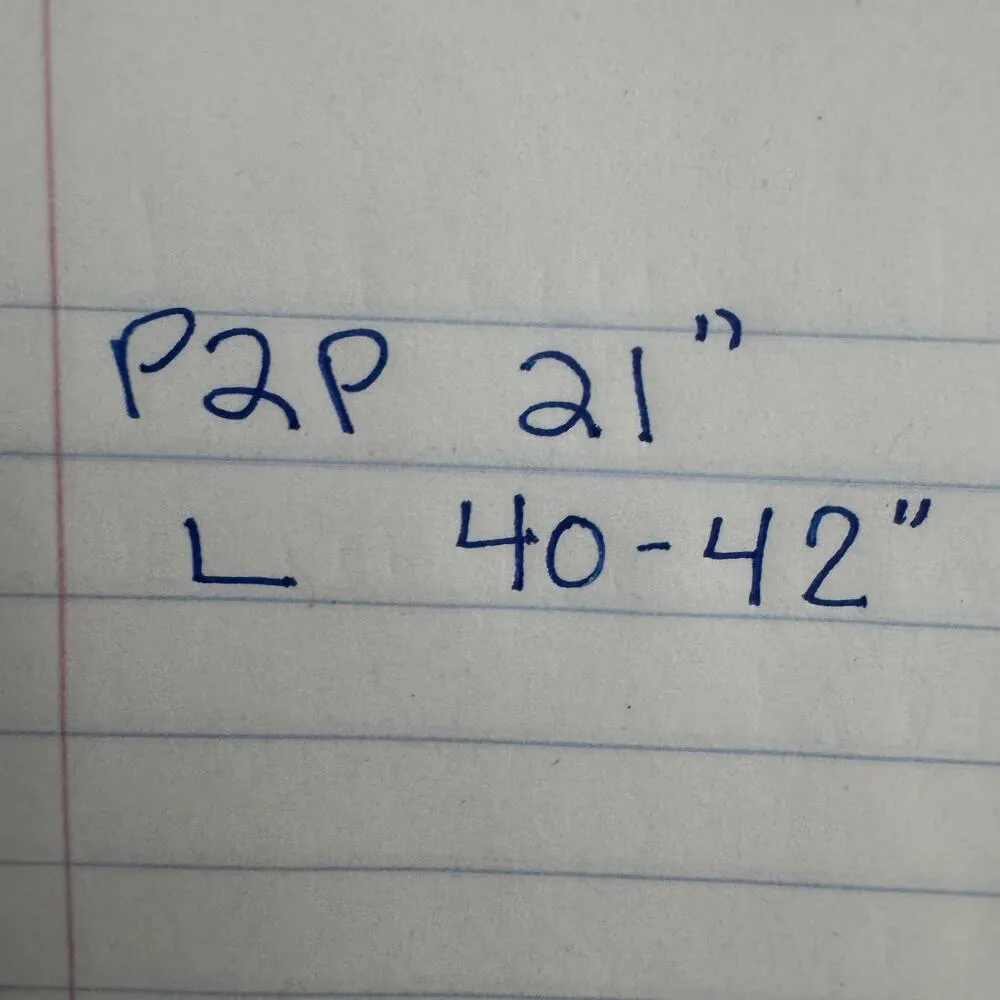 P2P 21"
L 40-42"